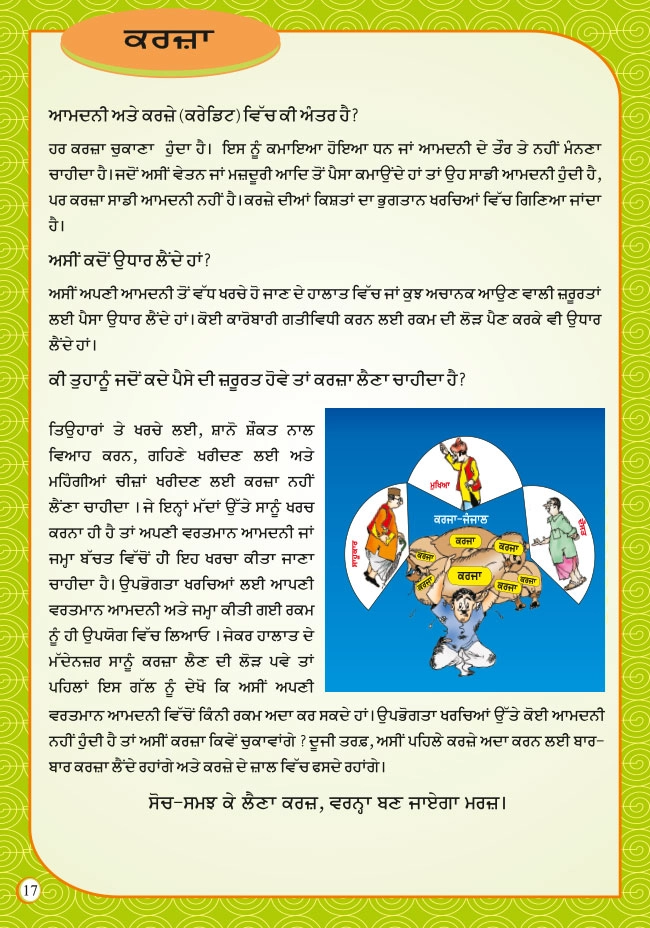 ਕਰਜ਼ਾ
ਆਮਦਨੀ ਅਤੇ ਕਰਜ਼ੇ (ਕਰੇਡਿਟ) ਵਿੱਚ ਕੀ ਅੰਤਰ ਹੈ?
ਹਰ ਕਰਜ਼ਾ ਚੁਕਾਣਾ ਹੁੰਦਾ ਹੈ। ਇਸ ਨੂੰ ਕਮਾਇਆ ਹੋਇਆ ਧਨ ਜਾਂ ਆਮਦਨੀ ਦੇ ਤੌਰ ਤੇ ਨਹੀਂ ਮੰਨਣਾ
ਚਾਹੀਦਾ ਹੈ। ਜਦੋਂ ਅਸੀਂ ਵੇਤਨ ਜਾਂ ਮਜ਼ਦੂਰੀ ਆਦਿ ਤੋਂ ਪੈਸਾ ਕਮਾਉਂਦੇ ਹਾਂ ਤਾਂ ਉਹ ਸਾਡੀ ਆਮਦਨੀ ਹੁੰਦੀ ਹੈ,
ਪਰ ਕਰਜ਼ਾ ਸਾਡੀ ਆਮਦਨੀ ਨਹੀਂ ਹੈ। ਕਰਜ਼ੇ ਦੀਆਂ ਕਿਸ਼ਤਾਂ ਦਾ ਭੁਗਤਾਨ ਖਰਚਿਆਂ ਵਿੱਚ ਗਿਣਿਆ ਜਾਂਦਾ
ਹੈ।
ਅਸੀਂ ਕਦੋਂ ਉਧਾਰ ਲੈਂਦੇ ਹਾਂ?
ਅਸੀਂ ਅਪਣੀ ਆਮਦਨੀ ਤੋਂ ਵੱਧ ਖਰਚੇ ਹੋ ਜਾਣ ਦੇ ਹਾਲਾਤ ਵਿੱਚ ਜਾਂ ਕੁਝ ਅਚਾਨਕ ਆਉਣ ਵਾਲੀ ਜ਼ਰੂਰਤਾਂ
ਲਈ ਪੈਸਾ ਉਧਾਰ ਲੈਂਦੇ ਹਾਂ। ਕੋਈ ਕਾਰੋਬਾਰੀ ਗਤੀਵਿਧੀ ਕਰਨ ਲਈ ਰਕਮ ਦੀ ਲੋੜ ਪੈਣ ਕਰਕੇ ਵੀ ਉਧਾਰ
ਲੈਂਦੇ ਹਾਂ।
ਕੀ ਤੁਹਾਨੂੰ ਜਦੋਂ ਕਦੇ ਪੈਸੇ ਦੀ ਜ਼ਰੂਰਤ ਹੋਵੇ ਤਾਂ ਕਰਜ਼ਾ ਲੈਣਾ ਚਾਹੀਦਾ ਹੈ?
ਤਿਉਹਾਰਾਂ ਤੇ ਖਰਚੇ ਲਈ, ਸ਼ਾਨੋ ਸ਼ੌਕਤ ਨਾਲ
ਵਿਆਹ ਕਰਨ, ਗਹਿਣੇ ਖਰੀਦਣ ਲਈ ਅਤੇ
ਮਹਿੰਗੀਆਂ ਚੀਜ਼ਾਂ ਖਰੀਦਣ ਲਈ ਕਰਜ਼ਾ ਨਹੀਂ
ਲੈਂਣਾ ਚਾਹੀਦਾ । ਜੇ ਇਨ੍ਹਾਂ ਮੱਦਾਂ ਉੱਤੇ ਸਾਨੂੰ ਖਰਚ
ਕਰਨਾ ਹੀ ਹੈ ਤਾਂ ਅਪਣੀ ਵਰਤਮਾਨ ਆਮਦਨੀ ਜਾਂ
ਜਮ੍ਹਾ ਬੱਚਤ ਵਿੱਚੋਂ ਹੀ ਇਹ ਖਰਚਾ ਕੀਤਾ ਜਾਣਾ
ਚਾਹੀਦਾ ਹੈ। ਉਪਭੋਗਤਾ ਖਰਚਿਆਂ ਲਈ ਆਪਣੀ
ਵਰਤਮਾਨ ਆਮਦਨੀ ਅਤੇ ਜਮ੍ਹਾ ਕੀਤੀ ਗਈ ਰਕਮ
ਨੂੰ ਹੀ ਉਪਯੋਗ ਵਿੱਚ ਲਿਆਓ । ਜੇਕਰ ਹਾਲਾਤ ਦੇ
ਮੱਦੇਨਜ਼ਰ ਸਾਨੂੰ ਕਰਜ਼ਾ ਲੈਣ ਦੀ ਲੋੜ ਪਵੇ ਤਾਂ
ਪਹਿਲਾਂ ਇਸ ਗੱਲ ਨੂੰ ਦੇਖੋ ਕਿ ਅਸੀਂ ਅਪਣੀ
ਵਰਤਮਾਨ ਆਮਦਨੀ ਵਿੱਚੋਂ ਕਿੰਨੀ ਰਕਮ ਅਦਾ ਕਰ ਸਕਦੇ ਹਾਂ। ਉਪਭੋਗਤਾ ਖਰਚਿਆਂ ਉੱਤੇ ਕੋਈ ਆਮਦਨੀ
ਨਹੀਂ ਹੁੰਦੀ ਹੈ ਤਾਂ ਅਸੀਂ ਕਰਜ਼ਾ ਕਿਵੇਂ ਚੁਕਾਵਾਂਗੇ ? ਦੂਜੀ ਤਰਫ਼, ਅਸੀਂ ਪਹਿਲੇ ਕਰਜ਼ੇ ਅਦਾ ਕਰਨ ਲਈ ਬਾਰ-
ਬਾਰ ਕਰਜ਼ਾ ਲੈਂਦੇ ਰਹਾਂਗੇ ਅਤੇ ਕਰਜ਼ੇ ਦੇ ਜਾਲ ਵਿੱਚ ਫਸਦੇ ਰਹਾਂਗੇ।
ਮੁਖਿਆ
ਸ਼ਾਹੂਕਾਰ
ਦੋਸਤ
ਕਰਜਾ-ਜੰਜਾਲ
ਕਰਜਾ
ਕਰਜਾ
ਕਰਜਾ
ਕਰਜਾ
ਕਰਜਾ
ਕਰਜਾ
ਕਰਜਾ
ਸੋਚ-ਸਮਝ ਕੇ ਲੈਣਾ ਕਰਜ਼, ਵਰਨ੍ਹਾ ਬਣ ਜਾਏਗਾ ਮਰਜ਼।
17